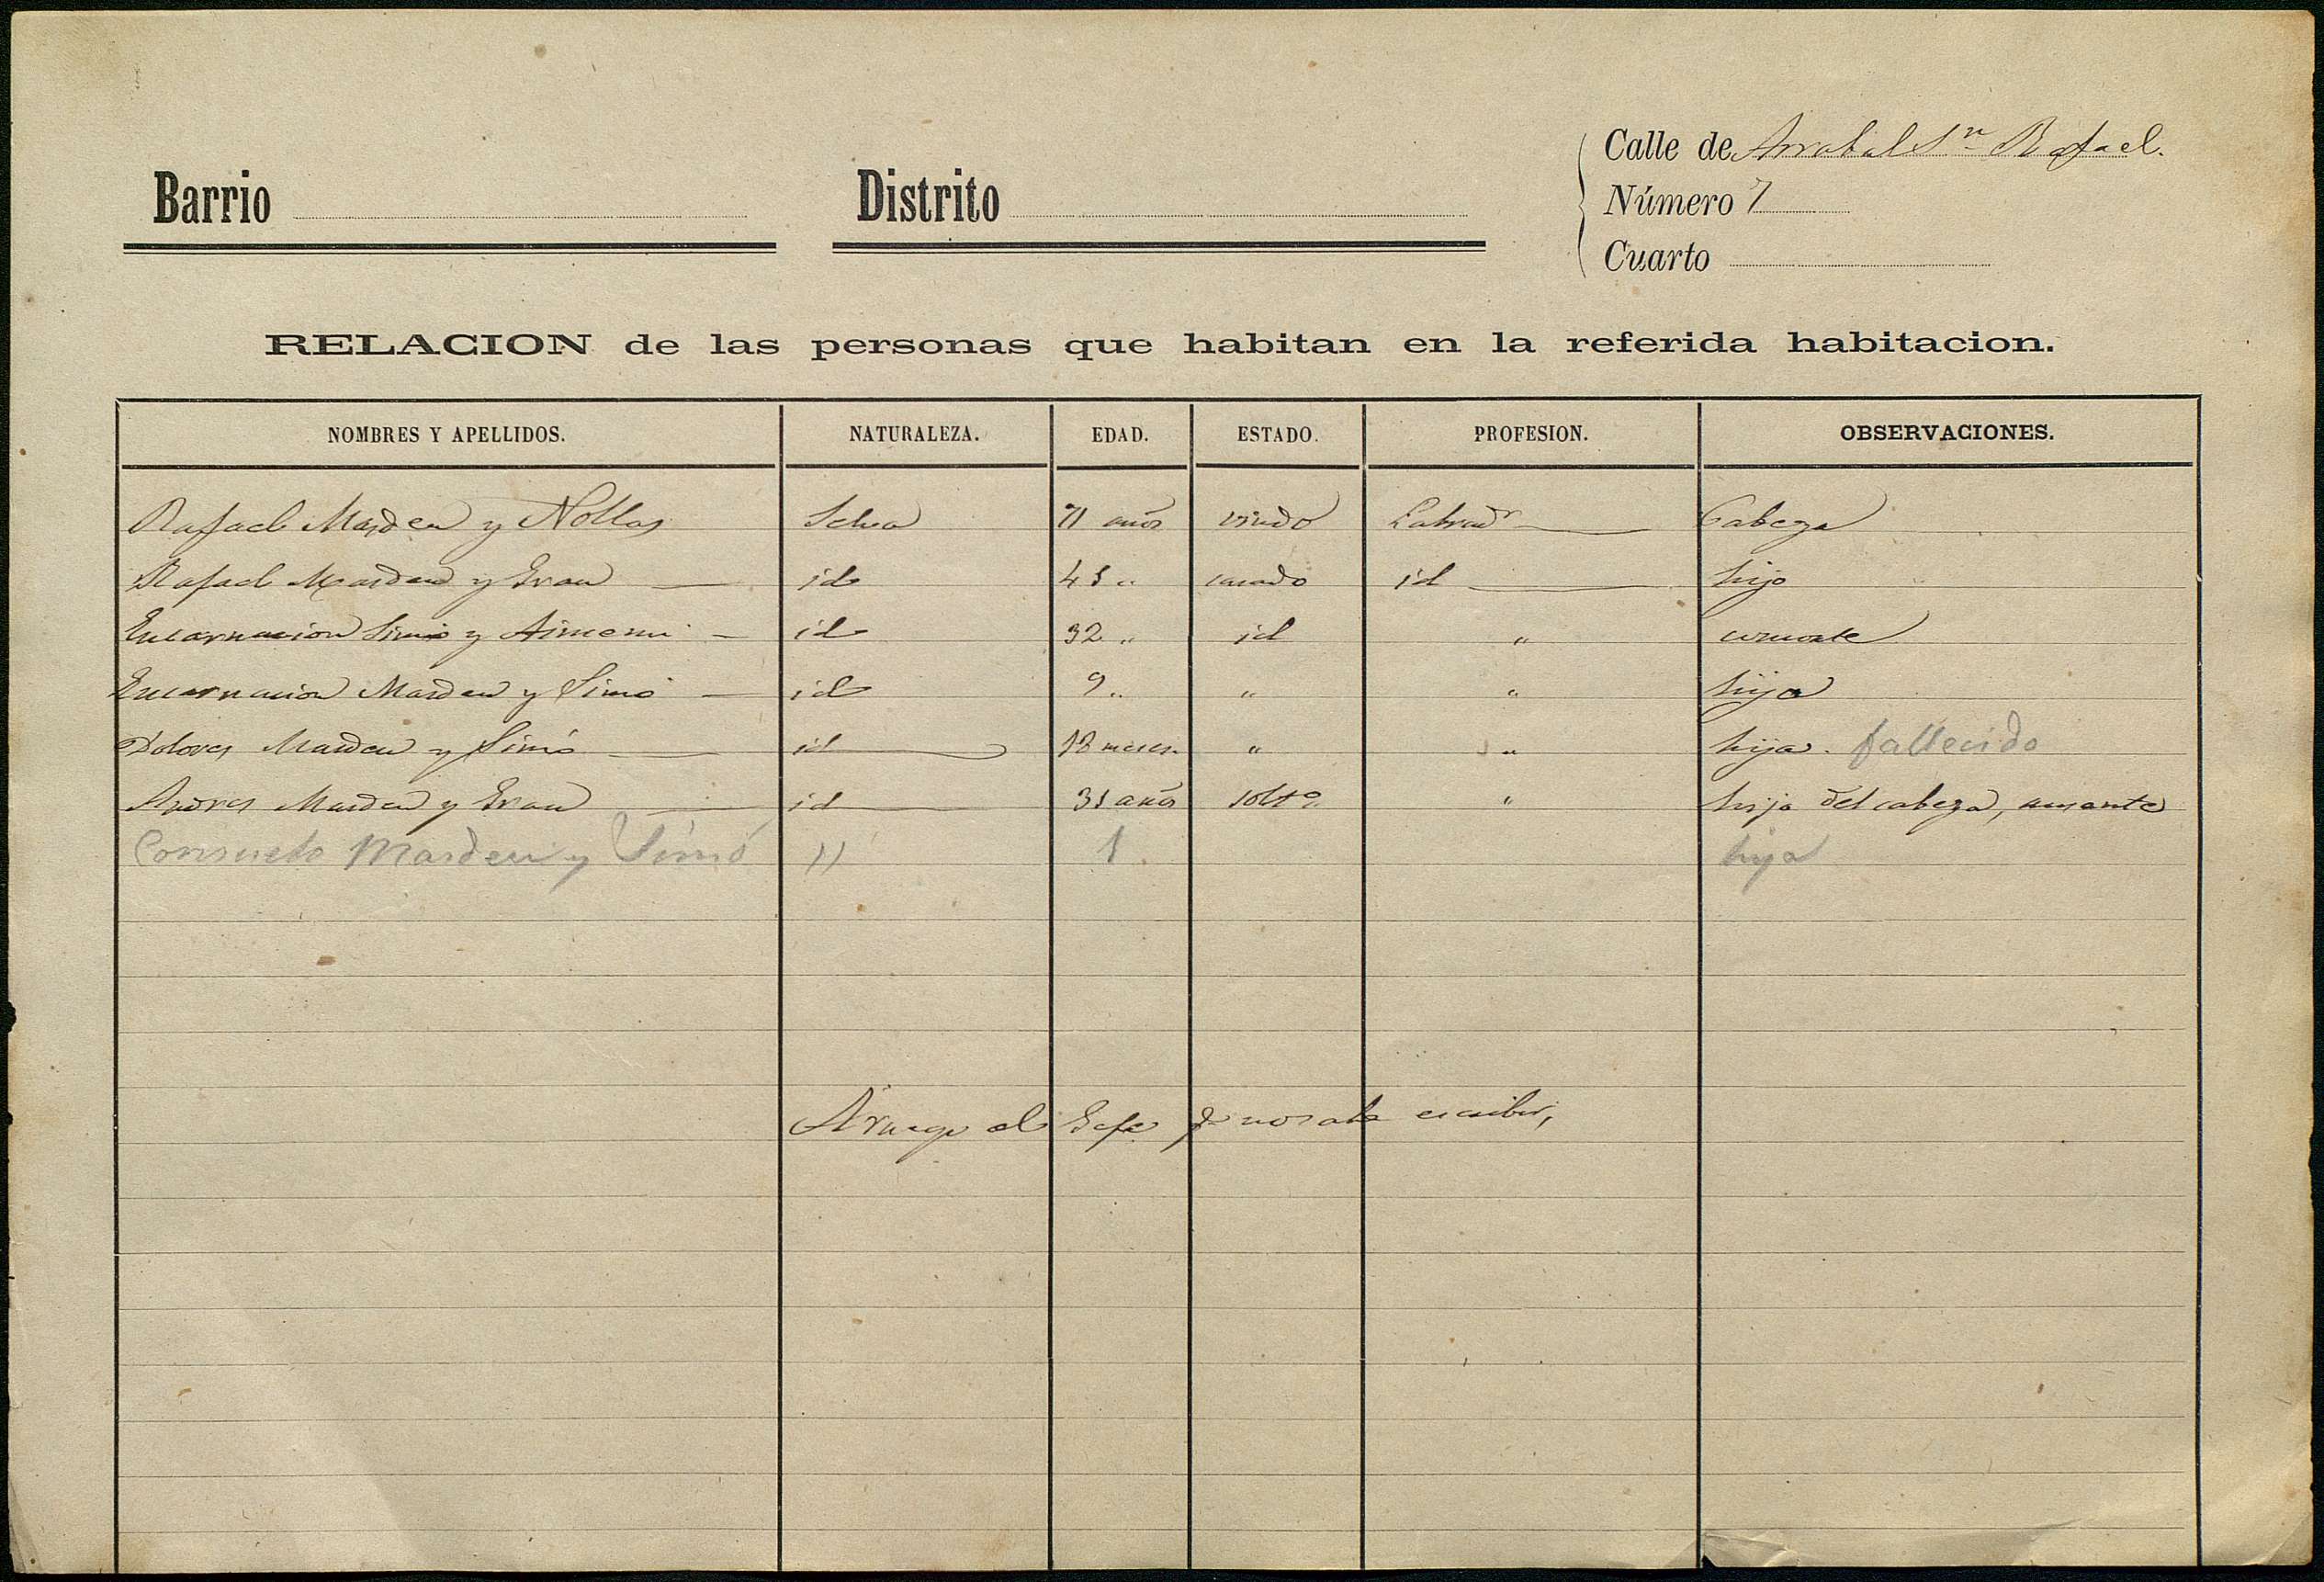 Calle de Arrabal Sn Rafael.
Barrio Distrito Número 7
Cuarto
RELACION de las personas que habitan en la referida habitacion.
NOMBRES Y APELLIDOS. NATURALEZA. EDAD. ESTADO. PROFESION. OBSERVACIONES.
Rafael Marden y Nollas Selva 71 años viudo Labradr Cabeza
Rafael Marden y Grau id 45 " casado id hijo
Encarnacion Simó y id 32 " id " consorte
Encarnacion Marden y Simó id 9 " " " hija
Dolores Marden y Simó id 18 meses " " hija. fallecido
Andres Marden y Grau id 31 años solto " hijo del cabeza, ausente
Consuelo Marden y Simó " 1 hija
A ruego del Gefe, q no sabe escribir,